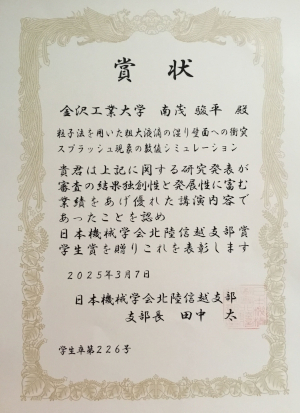 賞状
金沢工業大学 南茂 駿平 殿
粒子法を用いた粗大液滴の湿り壁面への衝突
スプラッシュ現象の数値シミュレーション
貴君は上記に関する研究発表が
審査の結果独創性と発展性に富む
業績をあげ優れた講演内容で
あったことを認め
日本機械学会北陸信越支部賞
学生賞を贈りこれを表彰します
2025年3月7日
日本機械学会北陸信越支部
支部長 田中 太
学生卓第226号